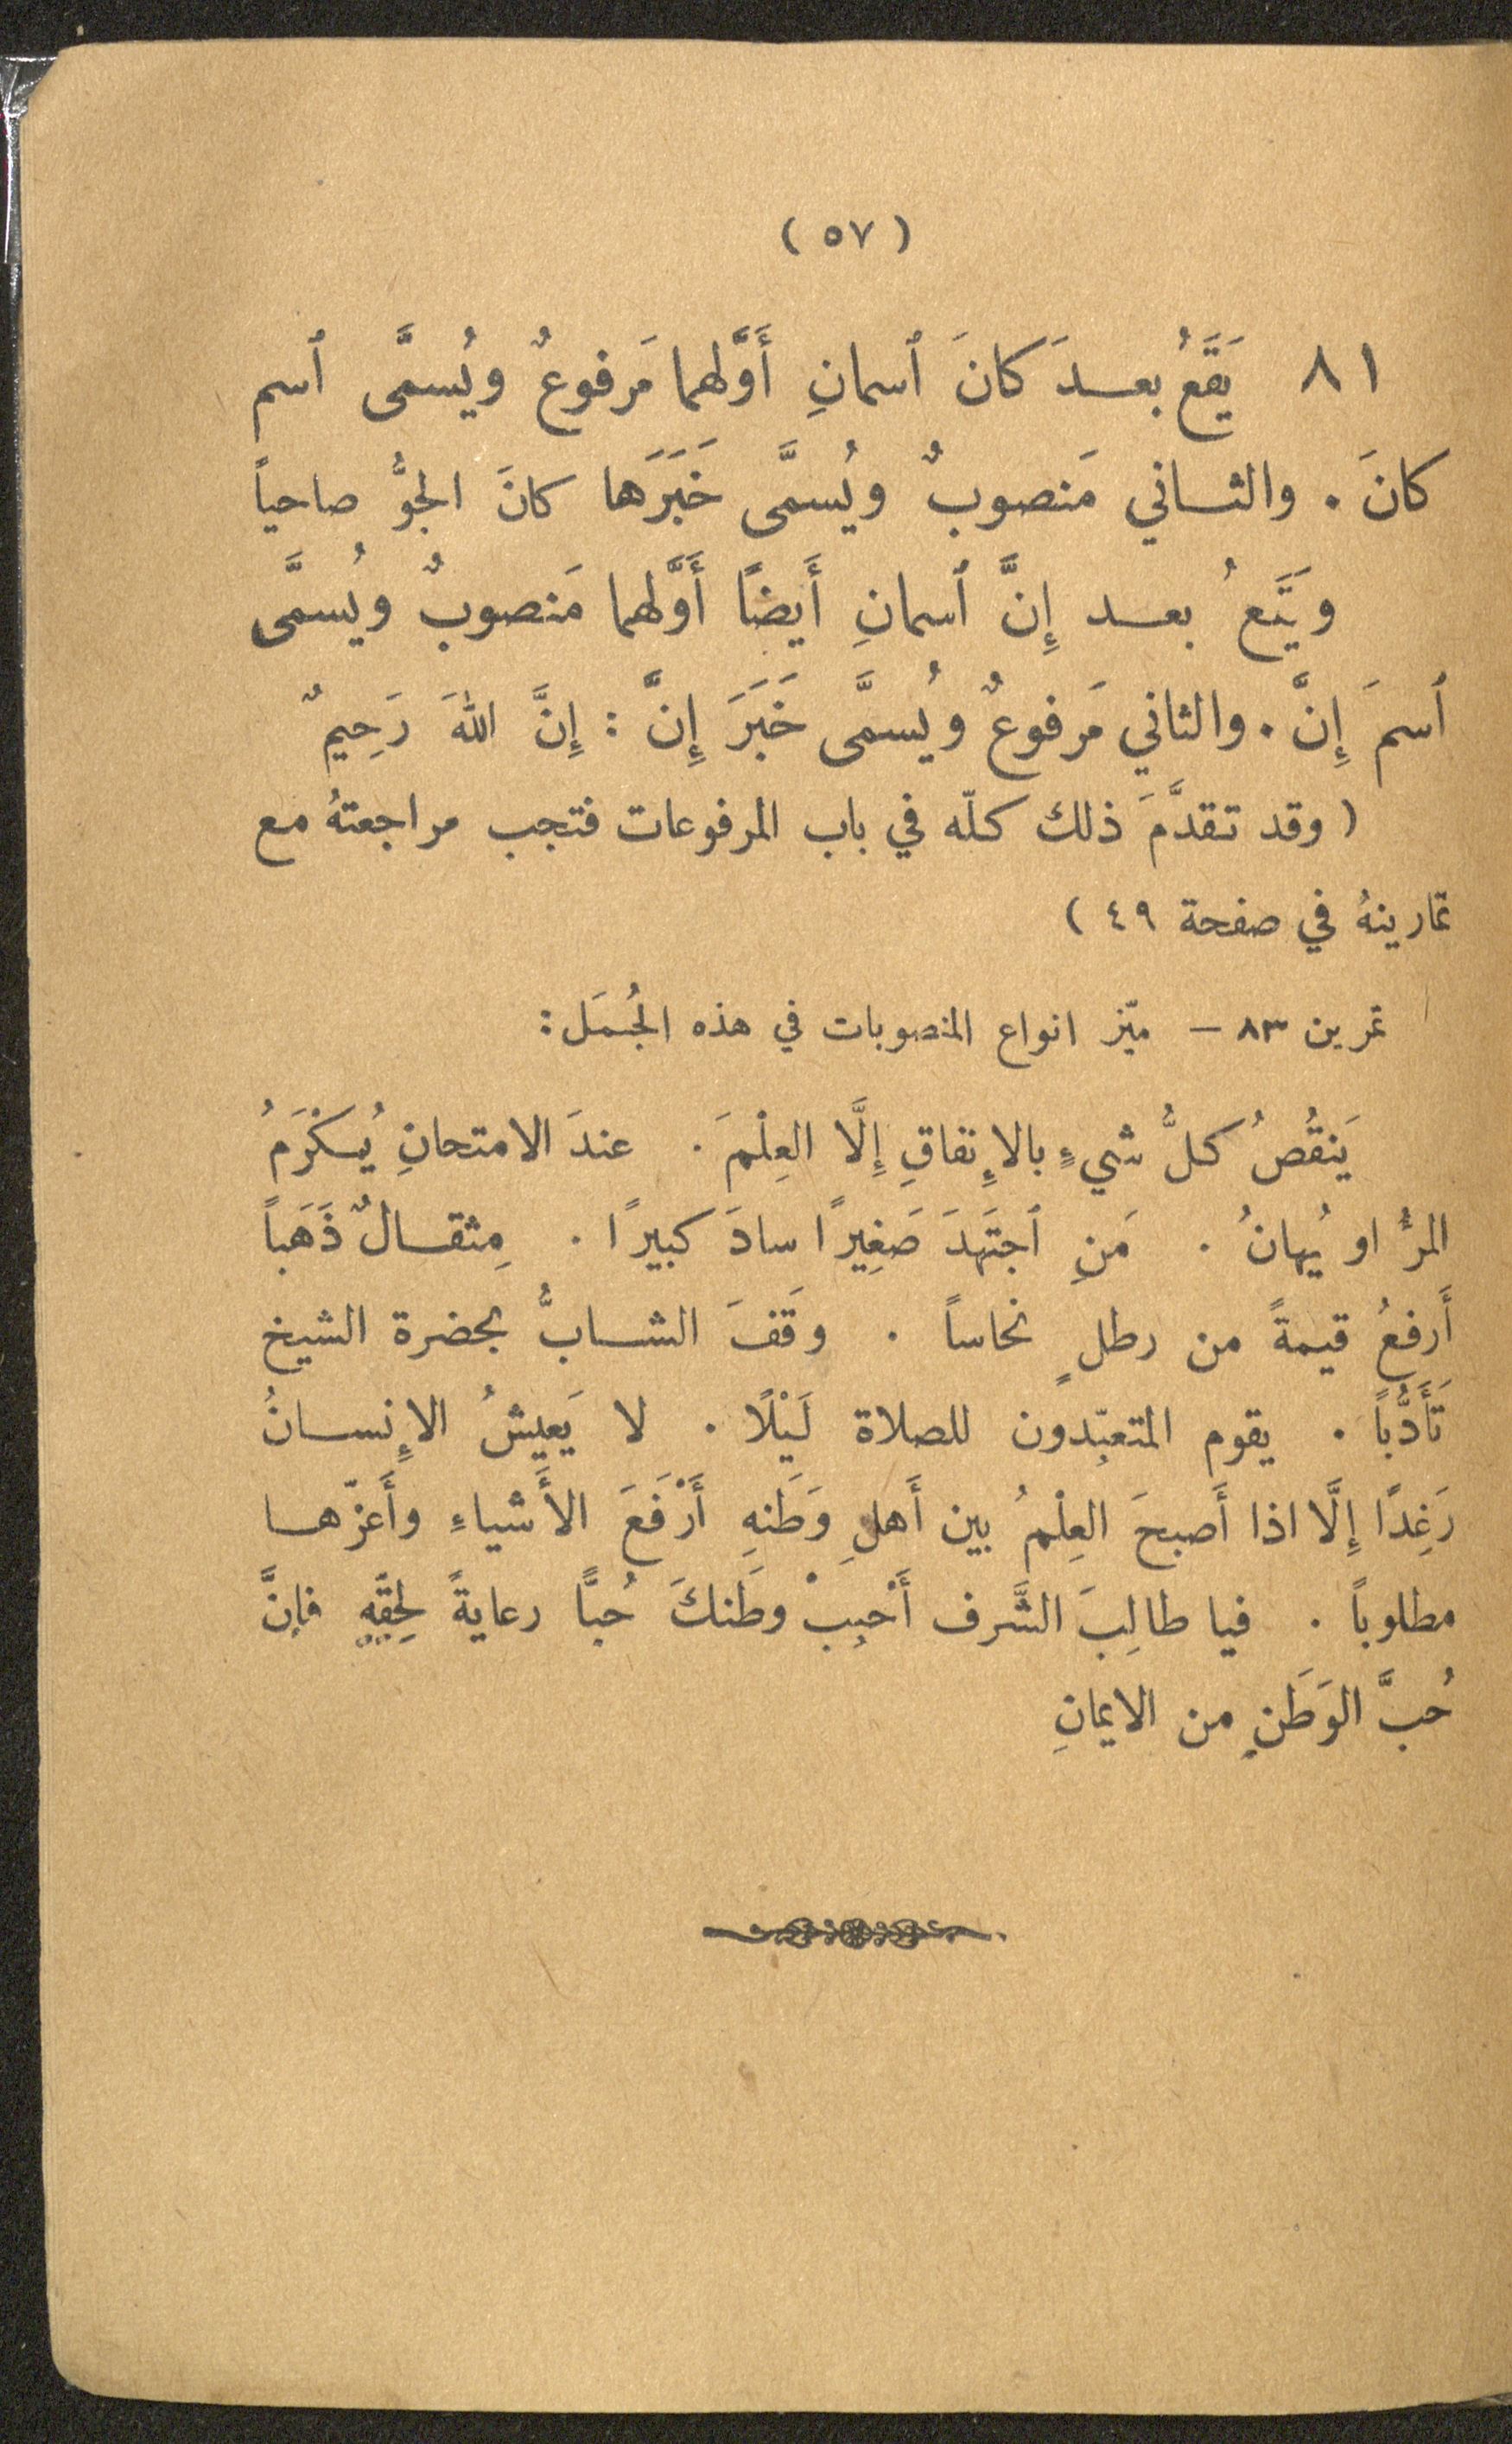 ( ٥٧ )
٨١ يَقَعُ بعدَ كانَ ٱسمانِ أَوَّلهما مَرفوعٌ ويُسمَّى ٱسم
كانَ . والثاني مَنصوبٌ ويُسمَّى خَبَرَها كانَ الجوُّ صاحياً
ويَقَعُ بعد إِنَّ ٱسمانِ أَيضًا أَوَّلهما مَنصوبٌ ويُسمَّى
ٱسمَ إِنَّ . والثاني مَرفوعٌ ويُسمَّى خَبَرَ إِنَّ : إِنَّ اللهَ رَحِيمٌ
( وقد تقدَّمَ ذلك كلّه في باب المرفوعات فتجب مراجعتهُ مع
تمارينهُ في صفحة ٤٩ )
تمرين ٨٣ – ميّز انواع المنصوبات في هذه الجُمَل :
يَنقُصُ كلُّ شيءٍ بالإِنفاقِ إِلَّا العِلْمَ . عندَ الامتحانِ يُكْرَمُ
المرُّ او يُهانُ . مَنِ ٱجتَهَدَ صَغِيرًا سادَ كبيرًا . مِثقالٌ ذَهَباً
أَرفعُ قيمةً من رطلٍ نحاساً . وقَفَ الشابُّ بحضرة الشيخ
تَأَدُّباً . يقوم المتعبّدون للصلاة لَيْلًا . لا يَعيشُ الإِنسانُ
رَغِدًا إِلَّا اذا أَصبحَ العِلْمُ بين أَهلِ وَطَنهِ أَرْفَعَ الأَشياءِ وأَعزّها
مطلوباً . فيا طالِبَ الشَّرف أَحْبِبْ وطَنكَ حُبًّا رعايةً لِحَقّهِ فإنَّ
حُبَّ الوَطَنِ من الايمانِ